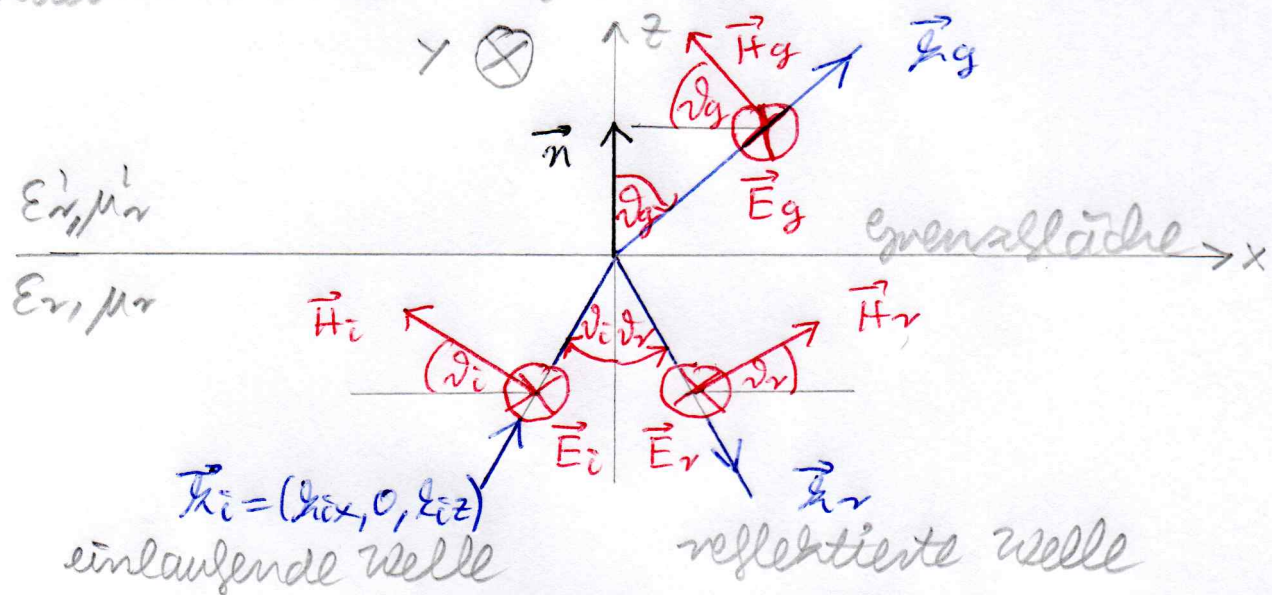 y z H⃗g k⃗g
ϑg
n⃗
ϑg E⃗g
ε'r, μ'r Grenzfläche x
εr, μr
H⃗i ϑi ϑr H⃗r
ϑi ϑr
E⃗i E⃗r
k⃗i = (kix, 0, kiz) k⃗r
einlaufende Welle reflektierte Welle